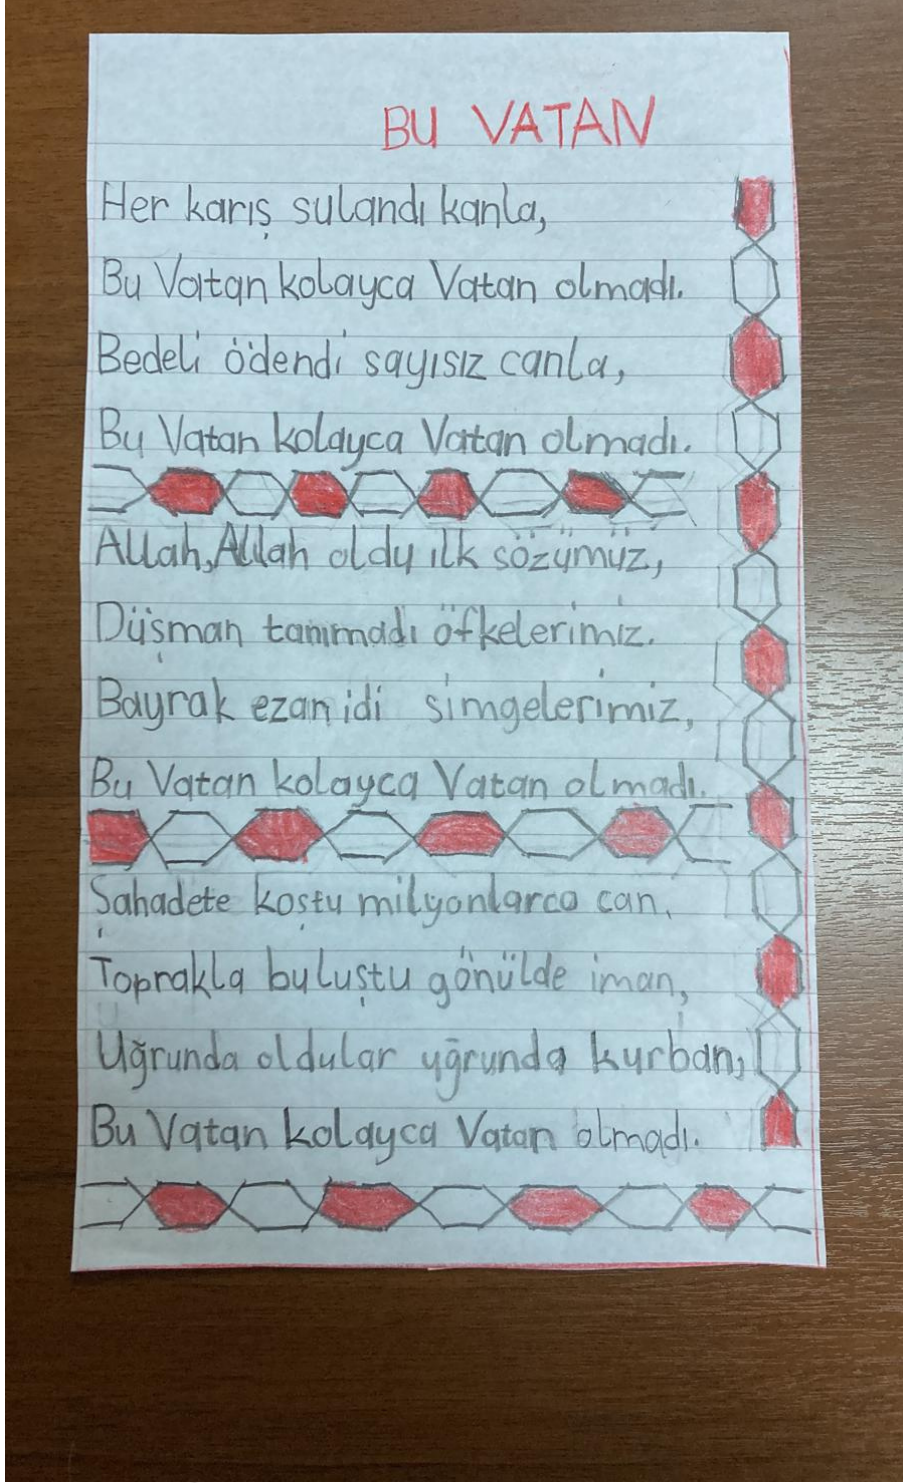 BU VATAN
Her karış sulandı kanla,
Bu Vatan kolayca Vatan olmadı.
Bedeli ödendi sayısız canla,
Bu Vatan kolayca Vatan olmadı.
Allah, Allah oldu ılk sözümüz,
Düşman tanımadı öfkelerimiz.
Bayrak ezan idi simgelerimiz,
Bu Vatan kolayca Vatan olmadı.
Şahadete koştu milyonlarca can,
Toprakla buluştu gönülde iman,
Uğrunda oldular uğrunda kurban,
Bu Vatan kolayca Vatan olmadı.